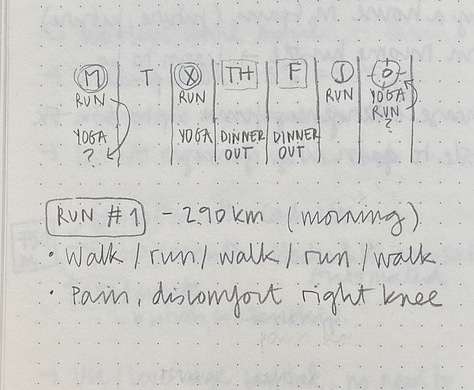 M T X TH F S D
RUN RUN RUN YOGA
YOGA YOGA DINNER DINNER RUN
? OUT OUT ?
RUN #1 - 2.90 km (morning)
• Walk / run / walk / run / walk
• Pain, discomfort right knee